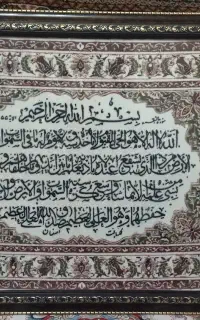 بسم الله الرحمن الرحيم
الله لا اله الا هو الحي القيوم لا تأخذه سنة ولا نوم له ما في السموا
الارض من ذا الذي يشفع عنده الا باذنه يعلم ما بين ايديهم وما خلفهم و
علمه الا بما شاء وسع كرسيه السموات والارض و
حفظهما وهو العلي العظيم صدق الله العلي العظيم